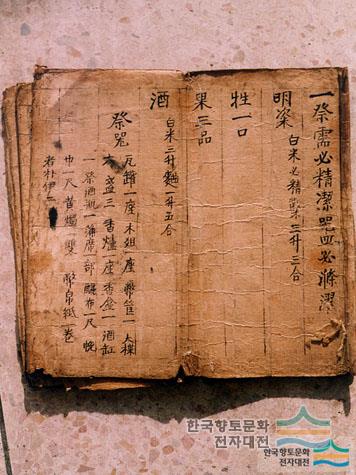 一祭需必精潔器皿必滌潔
明粢 白米必精鑿三升三合
牲一口
果三品
酒 白米三升麯一升五合
祭器 瓦鐺一座木俎一座幣篚一大楪
盞三香爐一座香盒一酒缸
一祭酒瓶一蒲席一部醯布一尺帨
巾一尺黃燭一雙幣帛紙一卷
者朴伊二
한국향토문화
전자대전
한국향토문화
전자대전